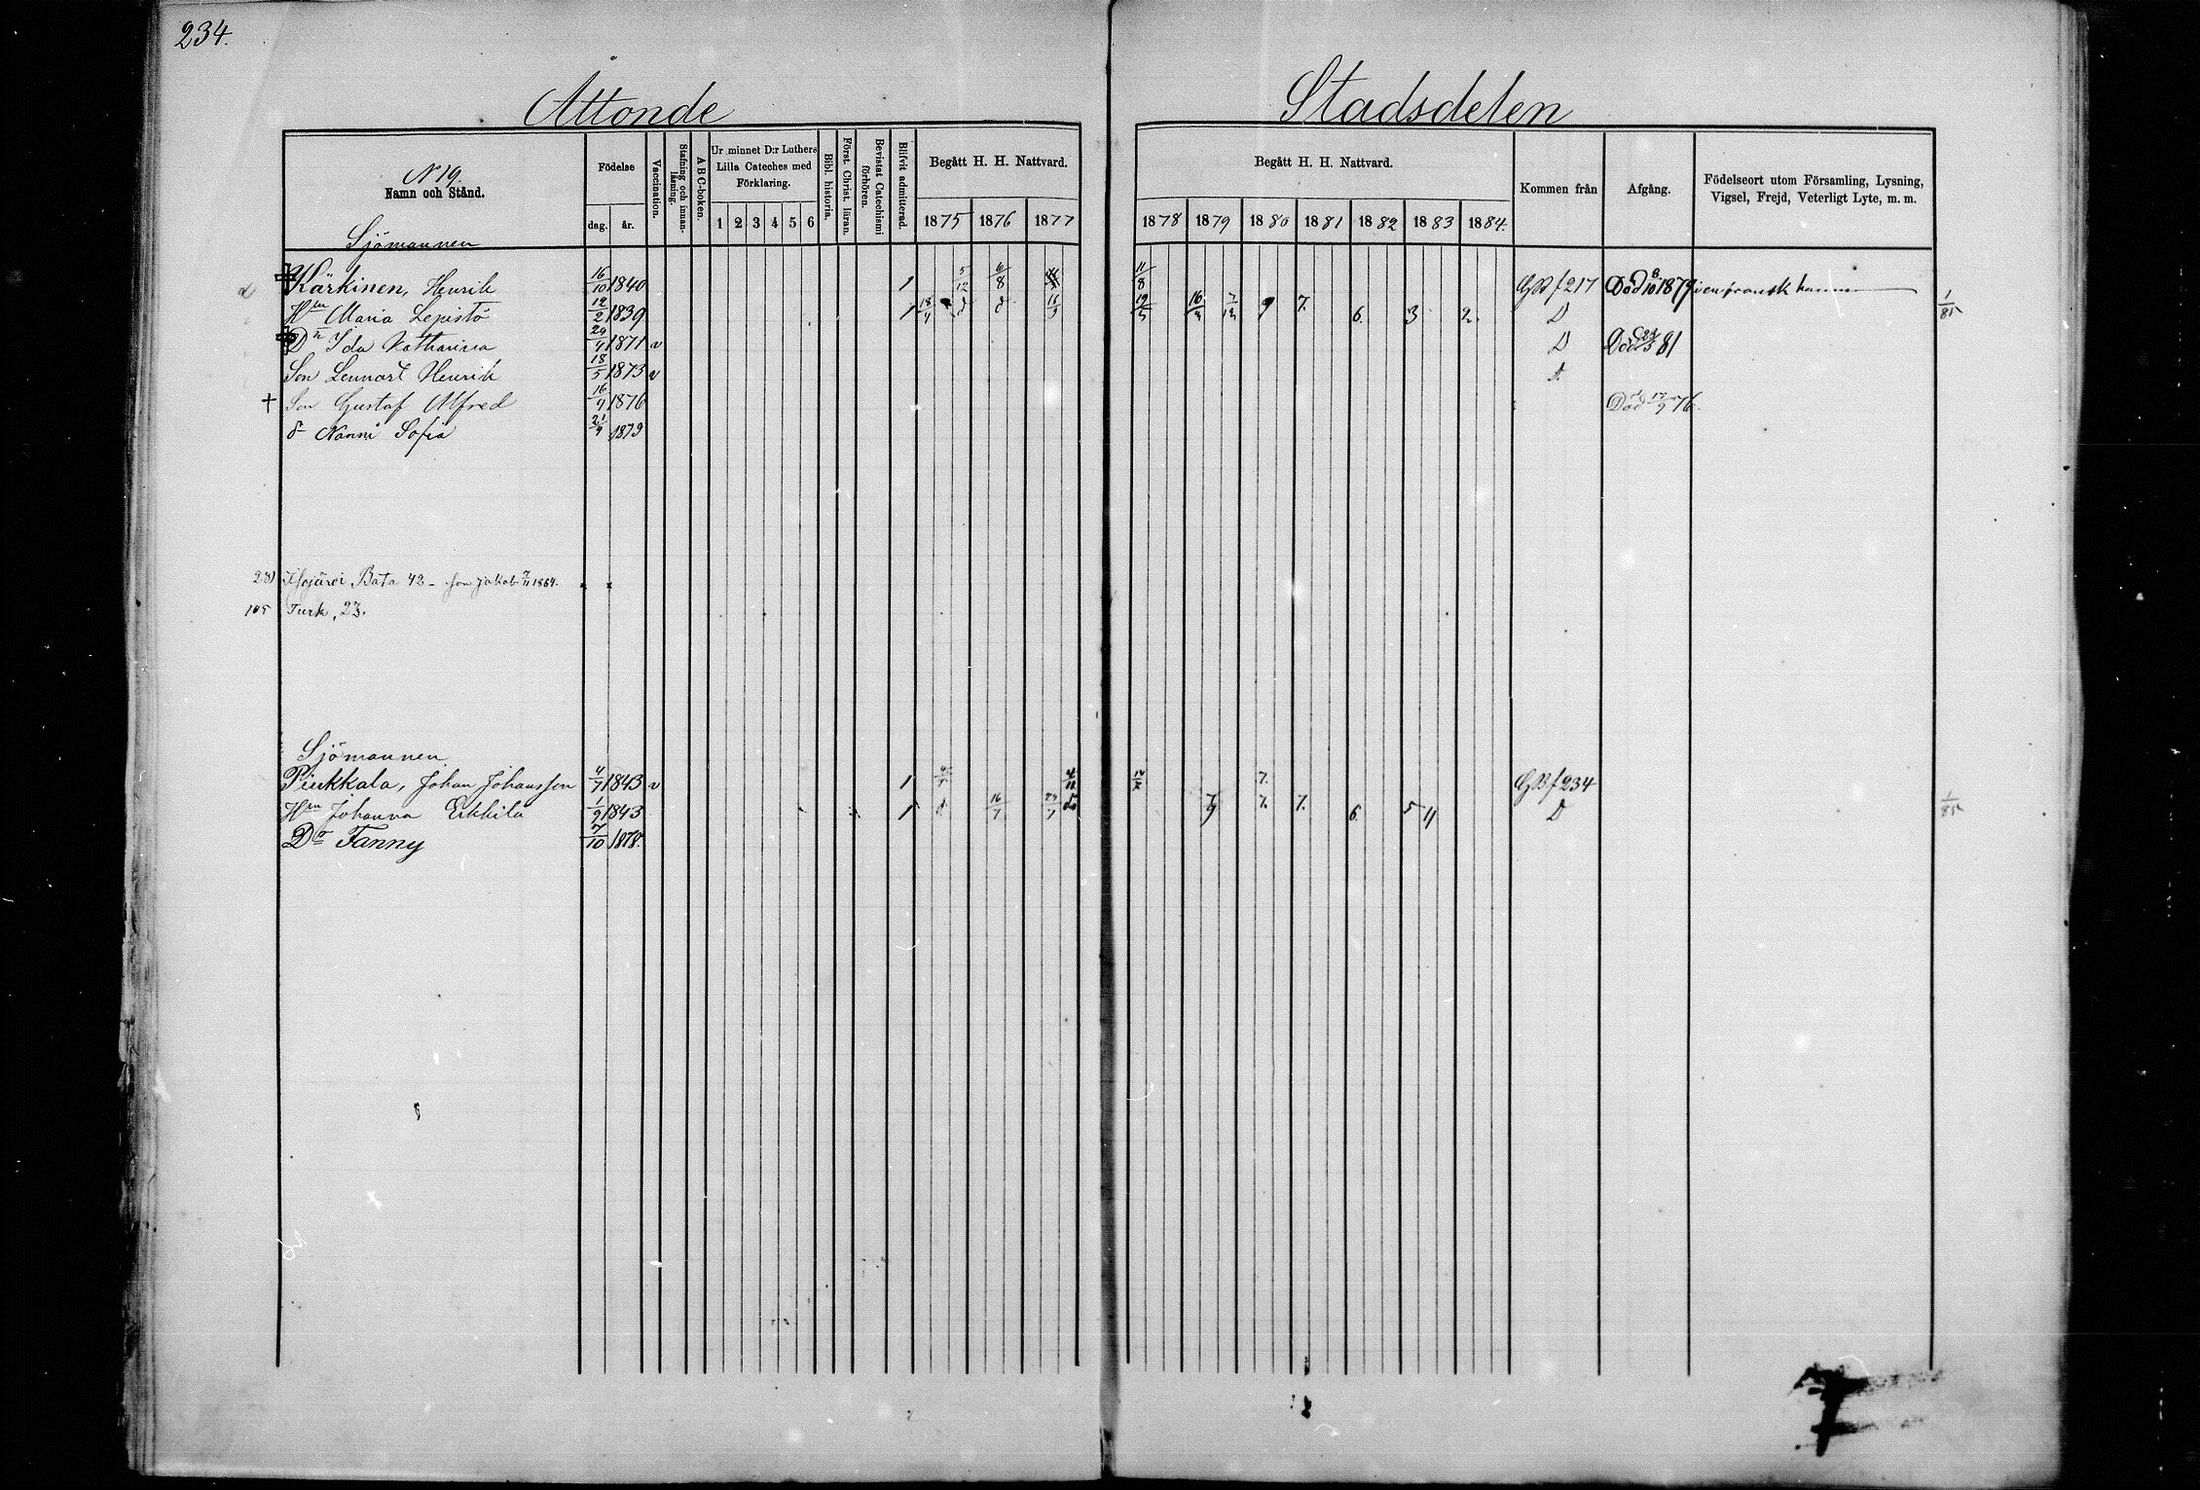 234.
Åttonde Stadsdelen
N 19.
Namn och Stånd.
Födelse
dag. år.
Vaccination.
Stafning och innanläsning.
ABC-boken.
Ur minnet D:r Luthers Lilla Cateches med Förklaring.
1 2 3 4 5 6
Bibl. historia.
Först. Christ. läran.
Bevistat Catechismi förhören.
Blifvit admitterad.
Begått H. H. Nattvard.
1875 1876 1877
Begått H. H. Nattvard.
1878 1879 1880 1881 1882 1883 1884.
Kommen från
Afgång.
Födelseort utom Församling, Lysning, Vigsel, Frejd, Veterligt Lyte, m. m.
Sjömannen
Kärkinen, Henrik 16/10 1840 1 5/12 6/8 11/8 GB f 217 Död 8/10 1879 i en fransk hamn
Hn Maria Lepistö 12/2 1839 1 18/4 16/3 7/12 9 7. 6. 3 2. D 1/85
Dr Ida Katharina 29/4 1871 v D Död 81
Son Lennart Henrik 18/5 1873 v
† Son Gustaf Alfred 16/4 1876 Död 17/9 76.
d Nanni Sofia 21/9 1879
Bata 42 - son Jakob 7/11 1864.
105 Turk, 23.
Sjömannen
Piukkala, Johan Johansson 4/7 1843 v 1 7. GB f 234
Hn Johanna Erkkilä 1/9 1843 1 16/7 7/9 7. 7. 6. 5 4 D 1/85
Dr Fanny 7/10 1878.